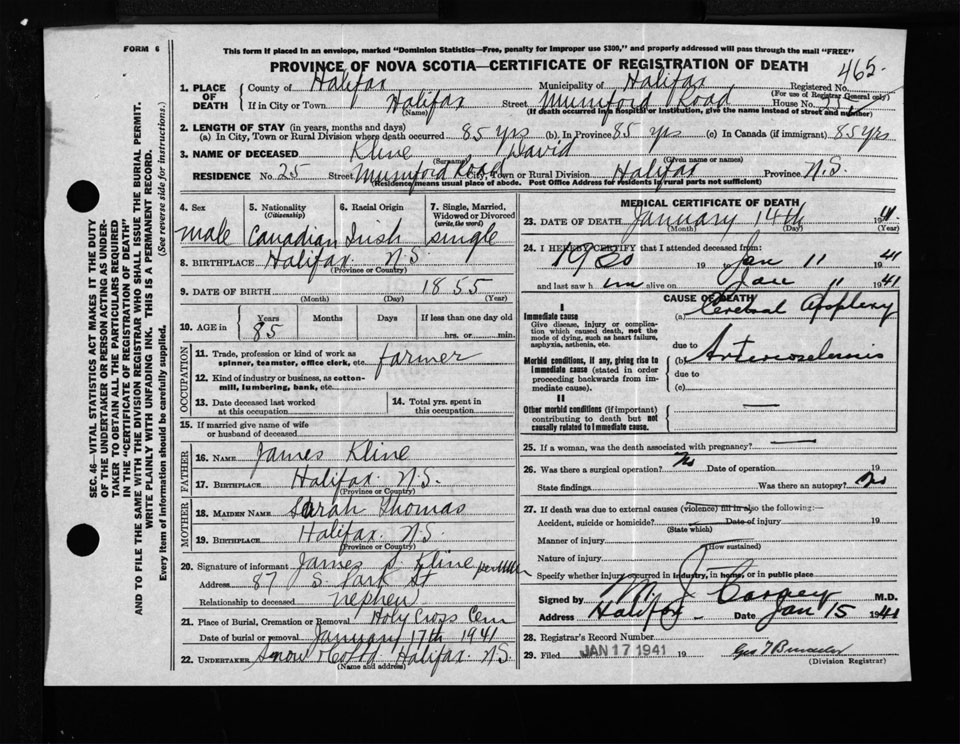 FORM 6
This form if placed in an envelope, marked "Dominion Statistics—Free, penalty for improper use $300," and properly addressed will pass through the mail "FREE"
PROVINCE OF NOVA SCOTIA—CERTIFICATE OF REGISTRATION OF DEATH
465
1. PLACE OF DEATH
County of Halifax Municipality of Halifax Registered No.
(For use of Registrar General only)
If in City or Town Halifax Street Mumford Road House No.
(Name) (If death occurred in a hospital or institution, give the name instead of street and number)
2. LENGTH OF STAY (in years, months and days)
(a) In City, Town or Rural Division where death occurred 85 yrs (b) In Province 85 yrs (c) In Canada (if immigrant) 85 yrs
3. NAME OF DECEASED Kline David
(Surname) (Given name or names)
RESIDENCE No. 25 Street Mumford Road City, Town or Rural Division Halifax Province N.S.
(Residence means usual place of abode. Post Office Address for residents in rural parts not sufficient)
4. Sex
male
5. Nationality
(Citizenship)
Canadian
6. Racial Origin
Irish
7. Single, Married, Widowed or Divorced
(write the word)
single
8. BIRTHPLACE Halifax N.S.
(Province or Country)
9. DATE OF BIRTH 1855
(Month) (Day) (Year)
10. AGE in Years Months Days If less than one day old
85 hrs. or min.
OCCUPATION
11. Trade, profession or kind of work as spinner, teamster, office clerk, etc. farmer
12. Kind of industry or business, as cotton-mill, lumbering, bank, etc.
13. Date deceased last worked at this occupation
14. Total yrs. spent in this occupation
15. If married give name of wife or husband of deceased
FATHER
16. NAME James Kline
17. BIRTHPLACE Halifax N.S.
(Province or Country)
MOTHER
18. MAIDEN NAME Sarah Thomas
19. BIRTHPLACE Halifax N.S.
(Province or Country)
20. Signature of informant James S. Kline per
Address 87 S. Park St
Relationship to deceased nephew
21. Place of Burial, Cremation or Removal Holy Cross Cem
Date of burial or removal January 17th 1941
22. UNDERTAKER Snow & Co Ltd. Halifax N.S.
(Name and address)
MEDICAL CERTIFICATE OF DEATH
23. DATE OF DEATH January 14th 1941
(Month) (Day) (Year)
24. I HEREBY CERTIFY that I attended deceased from:
19 to Jan 11 1941
and last saw him alive on Jan 11 1941
CAUSE OF DEATH
I
Immediate cause
Give disease, injury or complication which caused death, not the mode of dying, such as heart failure, asphyxia, asthenia, etc.
(a) Cerebral Apoplexy
due to
Morbid conditions, if any, giving rise to immediate cause (stated in order proceeding backwards from immediate cause).
(b) Arteriosclerosis
due to
(c)
II
Other morbid conditions (if important) contributing to death but not causally related to immediate cause.
25. If a woman, was the death associated with pregnancy?
26. Was there a surgical operation? No Date of operation 19
State findings Was there an autopsy? No
27. If death was due to external causes (violence) fill in also the following:—
Accident, suicide or homicide? Date of injury 19
(State which)
Manner of injury
(How sustained)
Nature of injury
Specify whether injury occurred in industry, in home, or in public place
Signed by M. J. Carney M.D.
Address Halifax Date Jan 15 1941
28. Registrar's Record Number
29. Filed JAN 17 1941 19
(Division Registrar)
SEC. 46—VITAL STATISTICS ACT MAKES IT THE DUTY
OF THE UNDERTAKER OR PERSON ACTING AS UNDER-
TAKER TO OBTAIN ALL THE PARTICULARS REQUIRED
IN THE "CERTIFICATE OF REGISTRATION OF DEATH"
AND TO FILE THE SAME WITH THE DIVISION REGISTRAR WHO SHALL ISSUE THE BURIAL PERMIT.
WRITE PLAINLY WITH UNFADING INK. THIS IS A PERMANENT RECORD.
Every item of information should be carefully supplied. (See reverse side for instructions.)